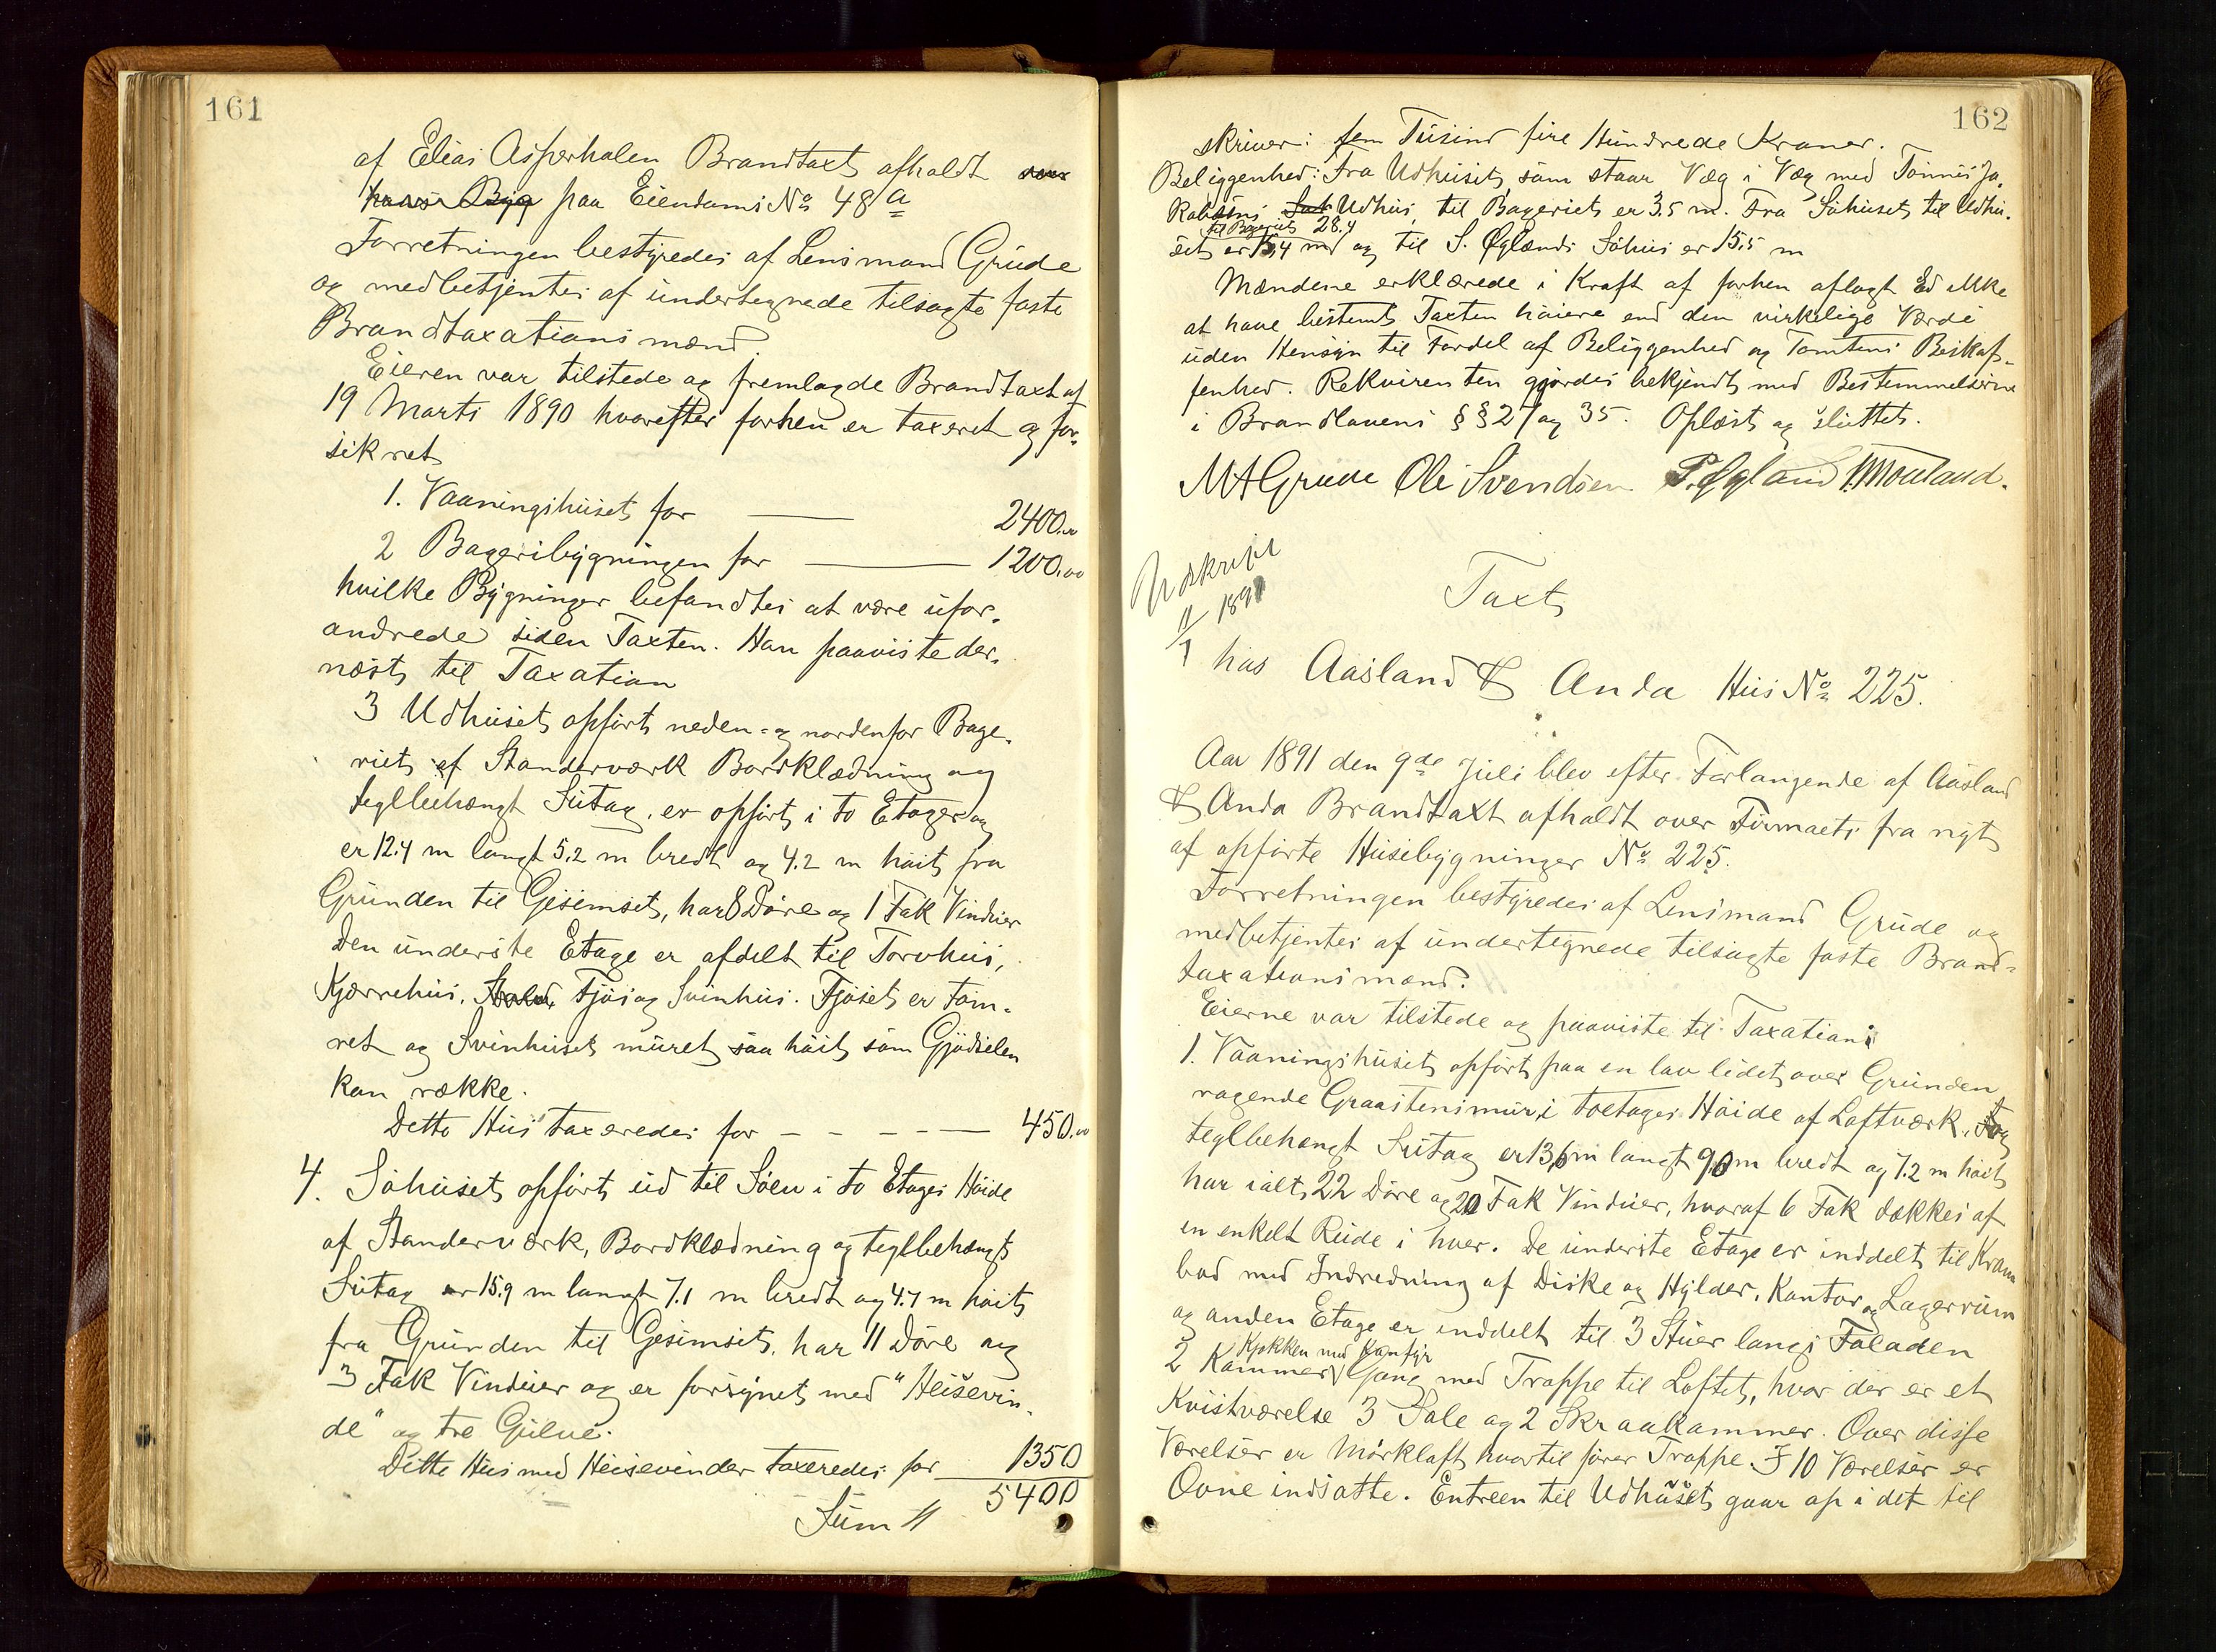 161
af Elias Asperholen Brandtaxt afholdt over
hans Byg paa Eiendoms No 48 a
Forretningen bestyredes af Lensmand Grude
og medbetjentes af undertegnede tilsagte faste
Brandtaxationsmænd.
Eieren var tilstede og fremlagde Brandtaxt af
19 Marts 1890 hvorefter forhen er taxeret og for-
sikret
1. Vaaningshuset for — 2400.00
2 Bageribygningen for — 1200.00
hvilke Bygninger befandtes at være ufor-
andrede siden Taxten. Han paaviste der-
næst til Taxation
3 Udhuset opført neden- og nordenfor Bage-
riet af Standerværk Bordklædning og
teglbehængt Sutag, er opført i to Etager og
er 12.4 m langt 5.2 m bredt og 4.2 m høit fra
Grunden til Gesimset, har 8 Døre og 1 Fak Vinduer
Den underste Etage er afdelt til Torvhus,
Kjærrehus, Stald, Fjøs og Svinhus. Fjøset er tøm-
ret og Svinhuset muret saa høit som Gjødselen
kan række.
Dette Hus taxeredes for - - - - — 450.00
4. Søhuset opført ud til Søen i to Etages Høide
af Standerværk, Bordklædning og teglbehængt
Sutag er 15.9 m langt 7.1 m bredt og 4.7 m høit
fra Grunden til Gesimset, har 11 Døre og
3 Fak Vinduer og er forsynet med "Heisevin-
de" og tre Gulve.
Dette Hus med Heisevinder taxeredes for 1350
Sum 5400
162
skriver: fem Tusind fire Hundrede Kroner.
Beliggenhed: Fra Udhuset, som staar Væg i Væg med Tønnes Ja-
kobsens Udhus, til Bageriet er 3.5 m. Fra Søhuset til Udhu-
til Bageriet 28.4
set er 15,4 m og til S. Øglænds Søhus er 15.5 m
Mændene erklærede i Kraft af forhen aflagt Ed ikke
at have bestemt Taxten høiere end den virkelige Værdi
uden Hensyn til Fordel af Beliggenhed og Tomtens Beskaf-
fenhed. Rekvirenten gjordes bekjendt med Bestemmelserne
i Brandlovens §§ 27 og 35. Oplæst og sluttet.
MAGrude Ole Svendsen P. Øgland Mouland.
Udskrift
11/7 1891
Taxt
hos Aasland & Anda Hus No 225.
Aar 1891 den 9de Juli blev efter Forlangende af Aasland
& Anda Brandtaxt afholdt over Firmaets fra nyt
af opførte Husebygninger No 225.
Forretningen bestyredes af Lensmand Grude og
medbetjentes af undertegnede tilsagte faste Brand-
taxationsmænd.
Eierne var tilstede og paaviste til Taxation
1. Vaaningshuset opført paa en lav lidet over Grunden
ragende Graastensmur, i toetages Høide af Loftværk,
teglbehængt Sutag er 13,6 m langt 9,0 m bredt og 7.2 m høit
har ialt 22 Døre og 20 Fak Vinduer, hvoraf 6 Fak dækkes af
en enkelt Rude i hver. De underste Etage er inddelt til Kram
bod med Indredning af Diske og Hylder, Kontor og Lagerrum
og anden Etage er inddelt til 3 Stuer langs Facaden
Kjøkken med Komfyr
2 Kammer Gang med Trappe til Loftet, hvor der er et
Kvistværelse 3 Sale og 2 Skraakammer. Over disse
Værelser er Mørkloft hvortil fører Trappe. I 10 Værelser er
Ovne indsatte. Entreen til Udhuset gaar op i det til